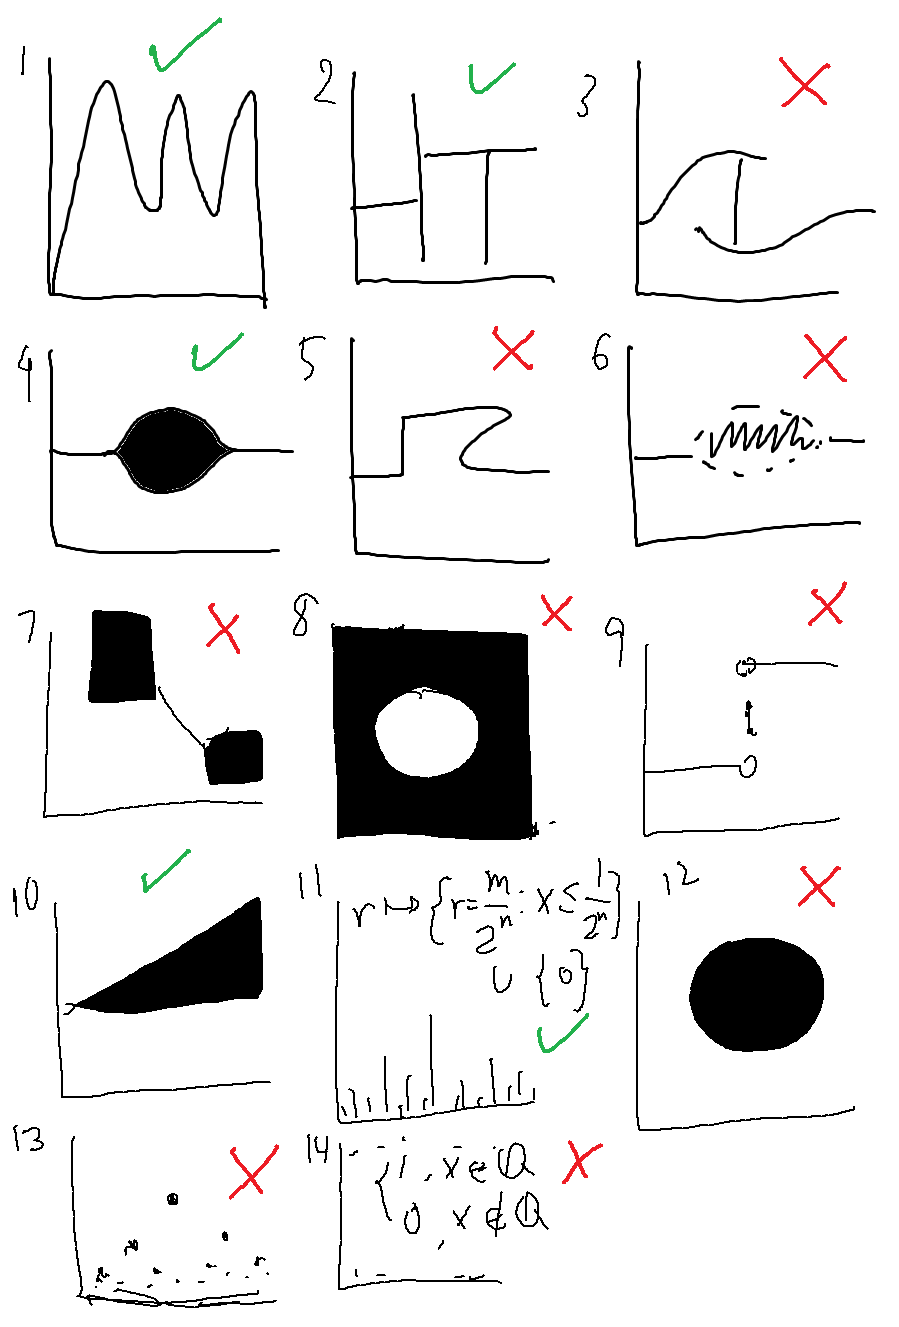 1
2
3
4
5
6
7
8
9
10
11
r ↦ {r = m/2ⁿ : x ≤ 1/2ⁿ}
∪ {0}
12
13
14
{ 1, x ∈ ℚ
0, x ∉ ℚ